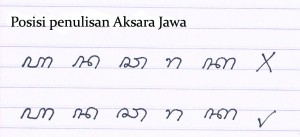 Posisi penulisan Aksara Jawa
ꦲ ꦤ ꦕ ꦫ ꦏ ✗
ꦲ ꦤ ꦕ ꦫ ꦏ ✓